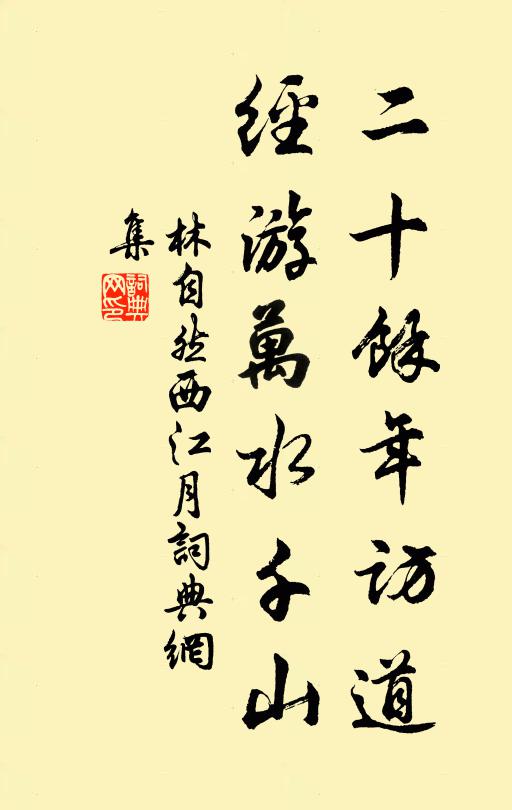 二十餘年訪道
經游萬水千山
林自然西江月詞典網
集
詞典
网印